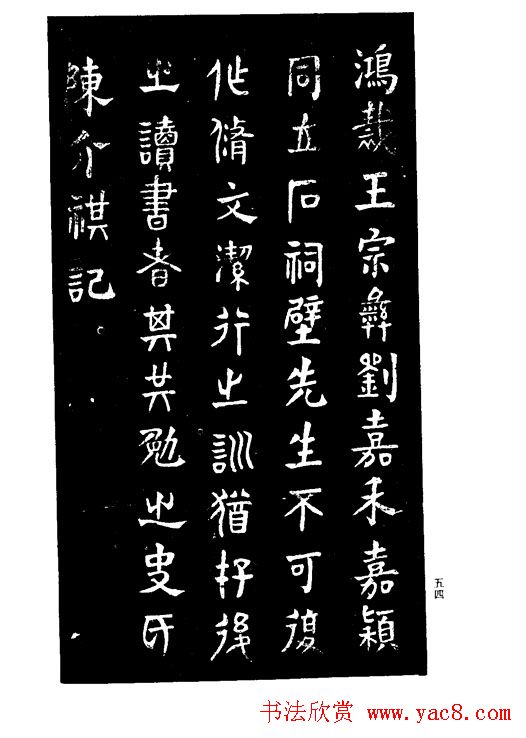 鴻裁王宗彝劉嘉禾嘉穎
同立石祠壁先生不可復
作脩文潔行之訓猶存後
之讀書者其共勉之吏民
陳介祺記
五四
书法欣赏 www.yac8.com